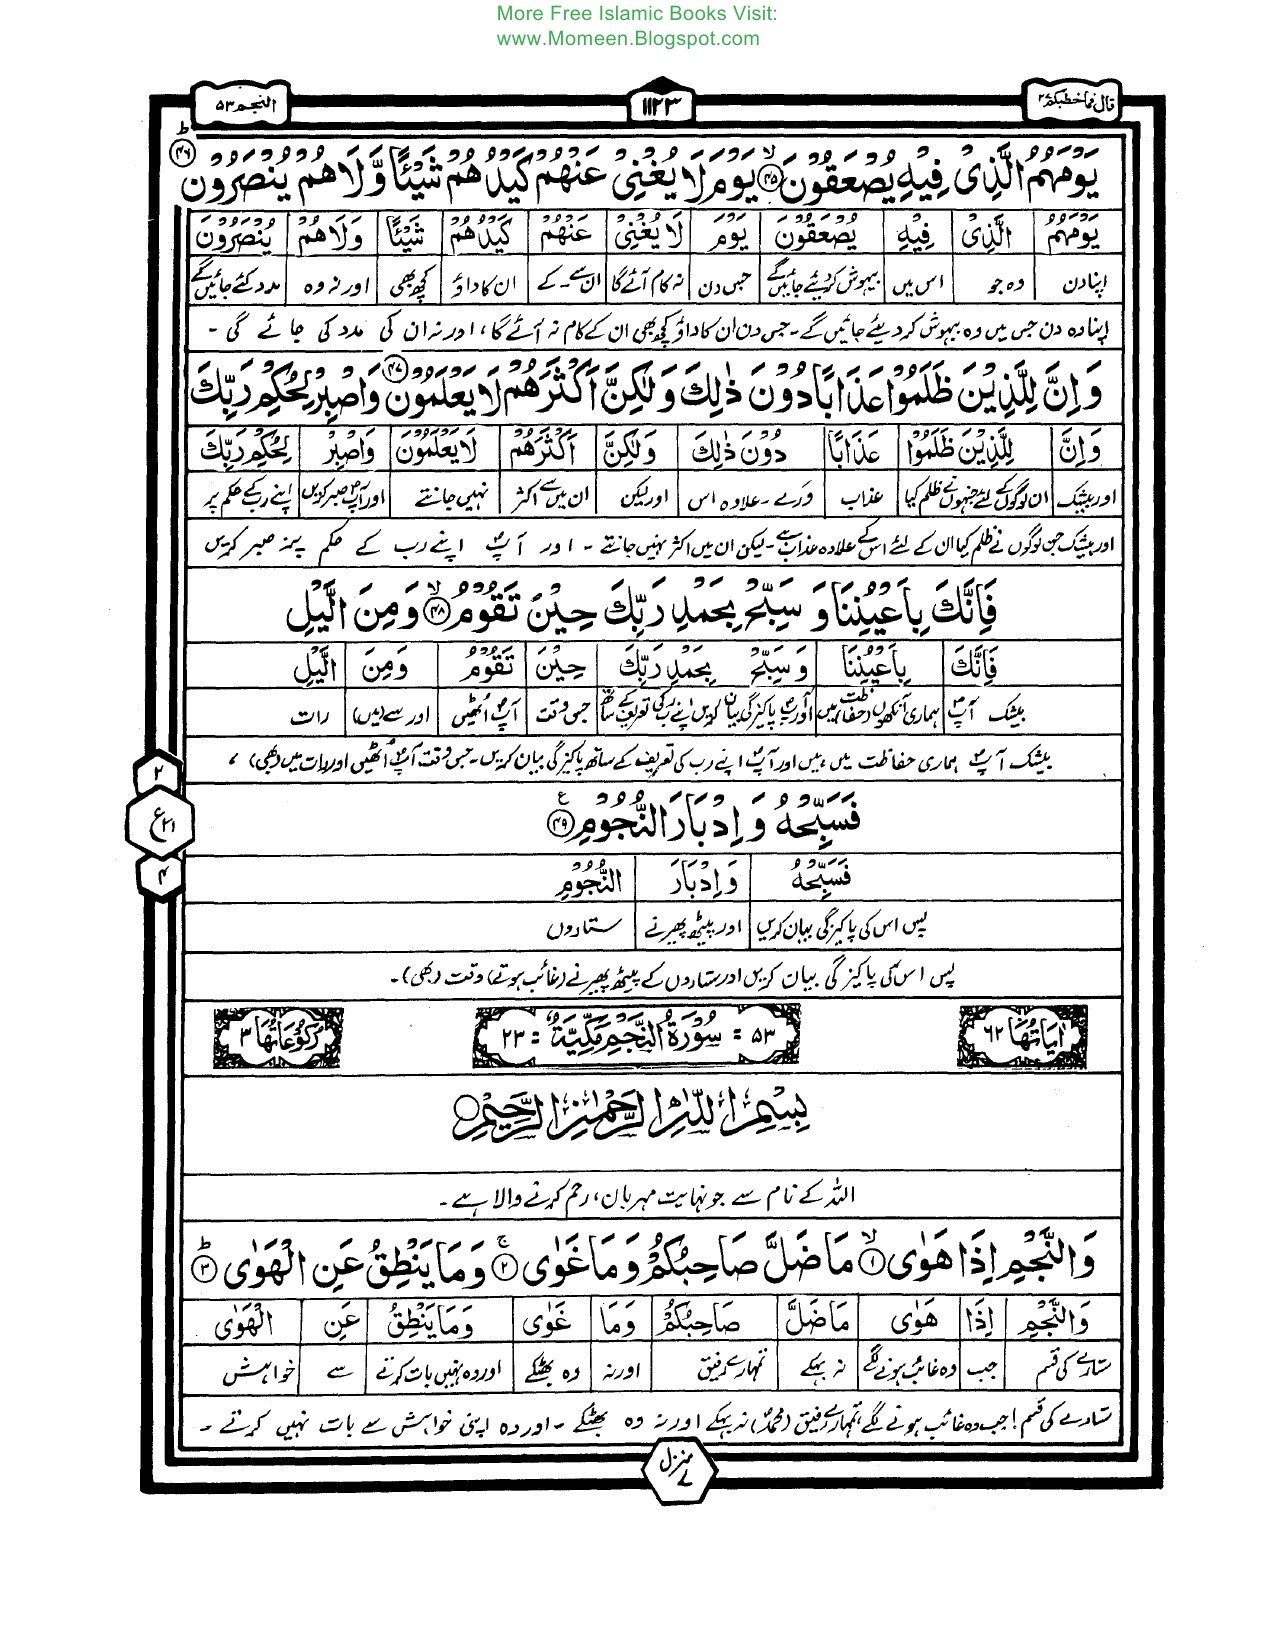 More Free Islamic Books Visit:
www.Momeen.Blogspot.com
قال فما خطبكم ٢٧
١١٢٣
النجم ٥٣
يَوْمَهُمُ الَّذِىْ فِيْهِ يُصْعَقُوْنَ ۙ﴿۴۵﴾ يَوْمَ لَا يُغْنِىْ عَنْهُمْ كَيْدُهُمْ شَيْـًٔا وَّلَا هُمْ يُنْصَرُوْنَ ؕ﴿۴۶﴾
يَوْمَهُمُ الَّذِىْ فِيْهِ يُصْعَقُوْنَ يَوْمَ لَا يُغْنِىْ عَنْهُمْ كَيْدُهُمْ شَيْـًٔا وَّلَا هُمْ يُنْصَرُوْنَ
اپنا دن وہ جو اس میں بیہوش کردیئے جائیں گے جس دن نہ کام آئے گا ان سے۔ کے ان کا داؤ کچھ بھی اور نہ وہ مدد کئے جائیں گے
اپنا وہ دن جس میں وہ بیہوش کر دیئے جائیں گے۔ جس دن ان کا داؤ کچھ بھی ان کے کام نہ آئے گا، اور نہ ان کی مدد کی جائے گی ۔
وَ اِنَّ لِلَّذِيْنَ ظَلَمُوْا عَذَابًا دُوْنَ ذٰلِكَ وَ لٰكِنَّ اَكْثَرَهُمْ لَا يَعْلَمُوْنَ ﴿۴۷﴾ وَ اصْبِرْ لِحُكْمِ رَبِّكَ
وَ اِنَّ لِلَّذِيْنَ ظَلَمُوْا عَذَابًا دُوْنَ ذٰلِكَ وَ لٰكِنَّ اَكْثَرَهُمْ لَا يَعْلَمُوْنَ وَ اصْبِرْ لِحُكْمِ رَبِّكَ
اور بیشک ان لوگوں کے لئے جنہوں نے ظلم کیا عذاب ورے۔ علاوہ اس اور لیکن ان میں سے اکثر نہیں جانتے اور آپؐ صبر کریں اپنے رب کے حکم پر
اور بیشک جن لوگوں نے ظلم کیا ان کے لئے اس کے علاوہ عذاب ہے۔ لیکن ان میں اکثر نہیں جانتے ۔ اور آپؐ اپنے رب کے حکم پر صبر کریں
فَاِنَّكَ بِاَعْيُنِنَا وَ سَبِّحْ بِحَمْدِ رَبِّكَ حِيْنَ تَقُوْمُ ۙ﴿۴۸﴾ وَ مِنَ الَّيْلِ
فَاِنَّكَ بِاَعْيُنِنَا وَ سَبِّحْ بِحَمْدِ رَبِّكَ حِيْنَ تَقُوْمُ وَ مِنَ الَّيْلِ
بیشک آپؐ ہماری آنکھوں (حفاظت) میں اور آپؐ پاکیزگی بیان کریں اپنے رب کی تعریف کے ساتھ جس وقت آپؐ اٹھیں اور سے (میں) رات
بیشک آپؐ ہماری حفاظت میں ہیں اور آپؐ اپنے رب کی تعریف کے ساتھ پاکیزگی بیان کریں۔ جس وقت آپؐ اٹھیں اور رات میں (بھی) ،
٢
ع ٢١
۴
فَسَبِّحْهُ وَ اِدْبَارَ النُّجُوْمِ ﴿۴۹﴾ ع
فَسَبِّحْهُ وَ اِدْبَارَ النُّجُوْمِ
پس اس کی پاکیزگی بیان کریں اور پیٹھ پھیرنے ستاروں
پس اس کی پاکیزگی بیان کریں اور ستاروں کے پیٹھ پھیرنے (غائب ہوتے) وقت (بھی)۔
اٰيَاتُهَا ٦٢
٥٣ = سُوْرَةُ النَّجْمِ مَكِّيَّةٌ = ٢٣
رُكُوْعَاتُهَا ٣
بِسْمِ اللّٰهِ الرَّحْمٰنِ الرَّحِيْمِ
اللہ کے نام سے جو نہایت مہربان، رحم کرنے والا ہے۔
وَ النَّجْمِ اِذَا هَوٰى ۙ﴿۱﴾ مَا ضَلَّ صَاحِبُكُمْ وَ مَا غَوٰى ۚ﴿۲﴾ وَ مَا يَنْطِقُ عَنِ الْهَوٰى ؕ﴿۳﴾
وَ النَّجْمِ اِذَا هَوٰى مَا ضَلَّ صَاحِبُكُمْ وَ مَا غَوٰى وَ مَا يَنْطِقُ عَنِ الْهَوٰى
ستارے کی قسم جب وہ غائب ہونے لگے نہ بہکے تمہارے رفیق اور نہ وہ بھٹکے اور وہ نہیں بات کرتے سے خواہش
ستارے کی قسم! جب وہ غائب ہونے لگے، تمہارے رفیق (محمدؐ) نہ بہکے اور نہ وہ بھٹکے ۔ اور وہ اپنی خواہش سے بات نہیں کرتے ۔
منزل ٧